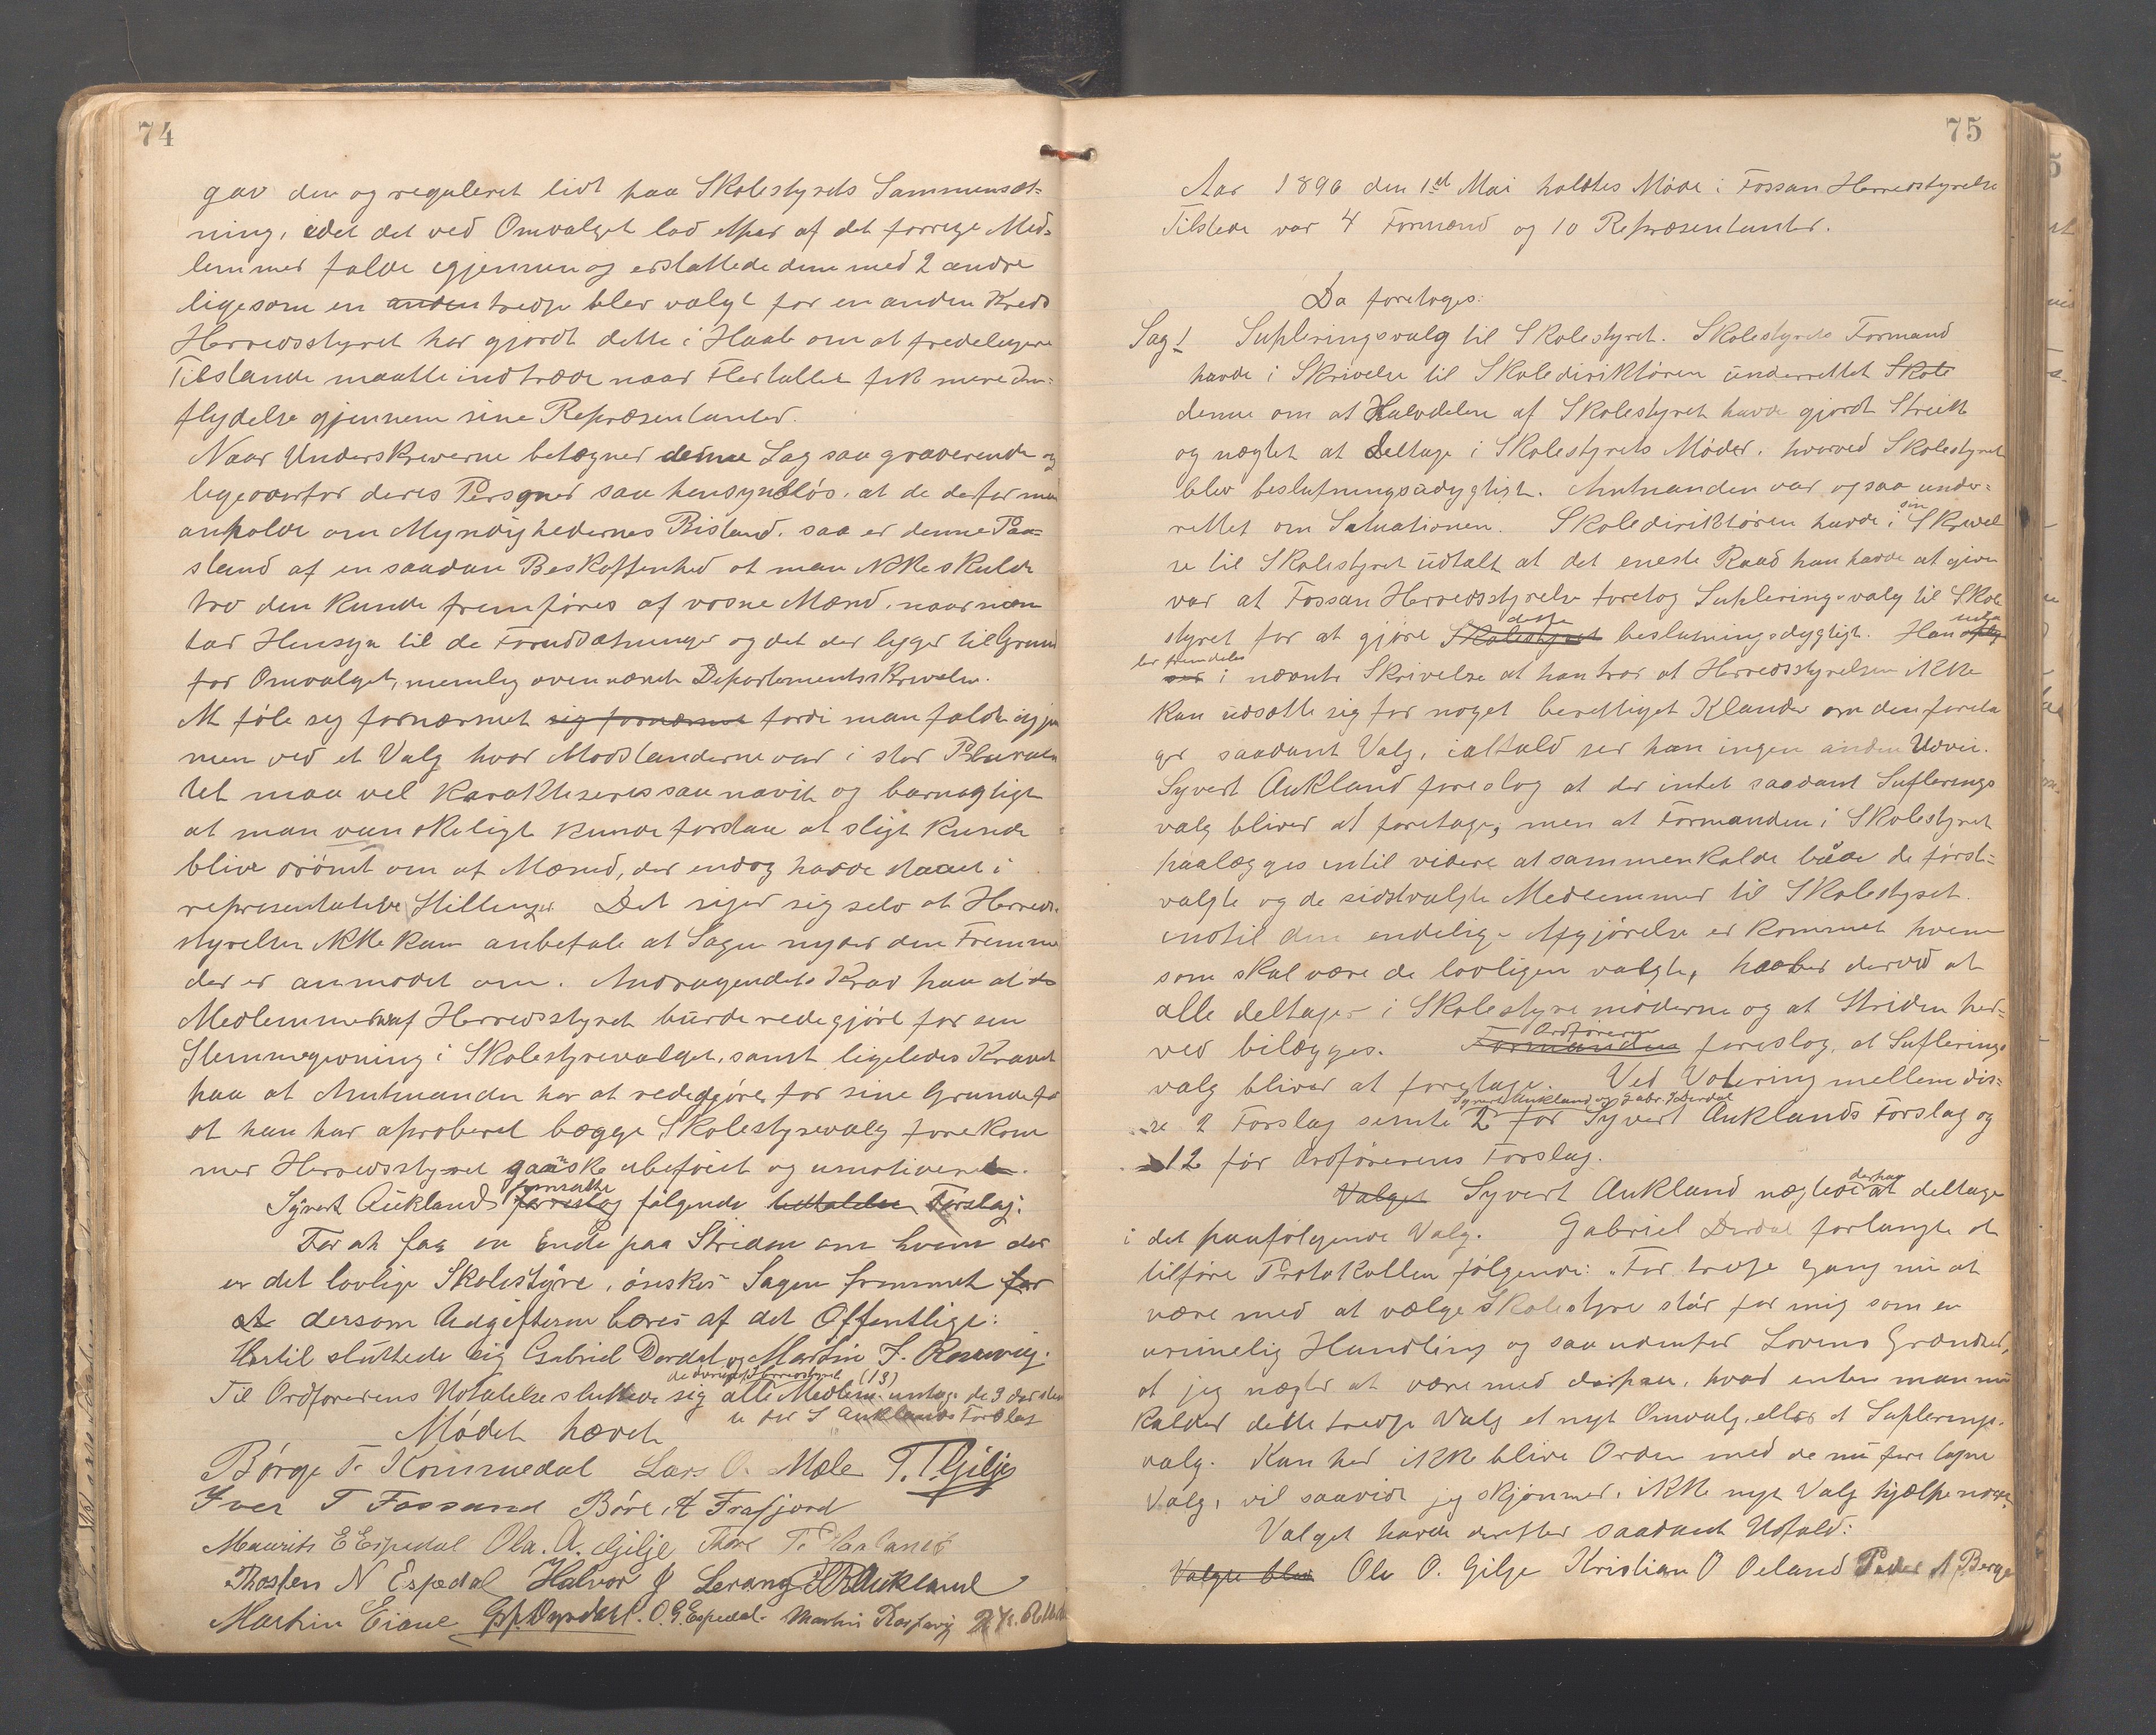 74
gav den og reguleret lidt paa Skolestyrets Sammensæt-
ning, idet det ved Omvalget lod etpar af det forrige Med-
lemmer falde igjennem og erstattede dem med 2 andre
ligesom en anden tredje blev valgt for en anden Kreds
Herredsstyret har gjordt dette i Haab om at fredeligere
Tilstande maatte indtræde naar Flertallet fik mere Ind-
flydelse gjennem sine Repræsentanter.
Naar Underskriverne betegner denne Sag saa graverende og
ligeoverfor deres Personer saa hensynsløs, at de derfor maa
anholde om Myndighedernes Bistand, saa er denne Paa-
stand af en saadan Beskaffenhed at man ikke skulde
tro den kunde fremføres af voxne Mænd, naar man
tar Hensyn til de Forudsætninger og det der ligger til Grund
for Omvalget, nemlig ovennævnte Departementsskrivelse.
At føle sig fornærmet sig fornærmet fordi man faldt igjen
nem ved et Valg hvor Modstanderne var i stor Plurali
tet maa vel karakteriseres saa navit og barnagtigt
at man vanskeligt kunde forstaa at sligt kunde
blive drømt om af Mænd, der endog havde staaet i
representative Stillinger Det siger sig selv at Herreds-
styrelsen ikke kan anbefale at Sagen nyder den Fremme
der er anmodet om. Andragendets Krav paa at de
Medlemmer af Herredsstyret burde redegjøre for sin
Stemmegivning i Skolestyrevalget, samt ligeledes Kravet
paa at Amtmanden har at redegjøre for sine Grunde for
at han har aproberet begge Skolestyrevalg forekom
mer Herredsstyret ganske ubeføiet og umotiveret.
fremsatte
Syvert Aukland foreslog følgende Udtalelse Forslag:
For at faa en Ende paa Striden om hvem der
er det lovlige Skolestyre, ønskes Sagen fremmet for
at dersom Udgifterne bæres af det Offentlige:
Hertil sluttede sig Gabriel Dørdal og Martin T. Rosavig.
de øvrige Herredsstyret (13)
Til Ordførerens Udtalelse sluttede sig alle Medlem. untag. de 3 der slut
te sig S Auklands Forslag
Mødet hævet
Børge T. Kommedal Lars O. Mæle T. T. Gilje
Iver T Fossand Børe A Frafjord
Maurits E Espedal Ola. A. Gilje Thore T.
Thosten N Espedal Halvor J Levang S R Aukland
Martin Eiane O. G. Espedal. Martin Rosavig
75
Aar 1896 den 1ste Mai holdtes Møde i Fossan Herredsstyrelse
Tilstede var 4 Formænd og 10 Repræsentanter.
Da foretoges:
Sag 1 Supleringsvalg til Skolestyret. Skolestyrets Formand
havde i Skrivelse til Skoledirektøren underrettet Skole
denne om at Halvdelen af Skolestyret havde gjordt Streik
og nægtet at Deltage i Skolestyrets Møder, hvorved Skolestyret
blev beslutningsudygtigt. Amtmanden var ogsaa under-
rettet om Situationen. Skoledirektøren havde i sin Skrivel
se til Skolestyret udtalt at det eneste Raad han havde at give
var at Fossan Herredsstyrelse foretog Supleringsvalg til Skole
styret for at gjøre Skolestyret dette beslutningsdygtigt. Han
ler fremdeles
i nævnte Skrivelse at han tror at Herredsstyrelsen ikke
kan udsætte sig for noget berettiget Klander om den foreta
ger saadant Valg, ialfald ser han ingen anden Udvei.
Syvert Aukland foreslog at der intet saadant Suplerings
valg bliver at foretage, men at Formanden i Skolestyret
paalægges intil videre at sammenkalde både de først-
valgte og de sidstvalgte Medlemmer til Skolestyret.
indtil den endelige Afgjørelse er kommet hvem
som skal være de lovligen valgte, haaber derved at
alle deltager i Skolestyremøderne og at Striden her-
ved bilægges. Formanden Ordføreren foreslog, at Suplerings
valg bliver at foretage. Ved Votering mellem dis-
Syvert Aukland og Gabr. Dørdal
se 2 Forslag stemte 2 for Syvert Auklands Forslag og
12 før Ordførerens Forslag.
Valget Syvert Aukland nægtede derpaa at deltage
i det paafølgende Valg. Gabriel Dørdal forlangte at
tilføre Protokollen følgende: "For tredje Gang nu at
være med at vælge Skolestyre står for mig som en
urimelig Handling og saa udenfor Lovens Grændser,
at jeg nægter at være med derpaa, hvad enten man nu
kalder dette tredje Valg et nyt Omvalg, eller et Suplerings-
valg. Kan her ikke blive Orden med de nu foretagne
Valg, vil saavidt jeg skjønner, ikke nyt Valg hjælpe noget.
Valget havde derefter saadant Udfald:
Valgte blev Ole O. Gilje Kristian O Oeland Peder A Berge